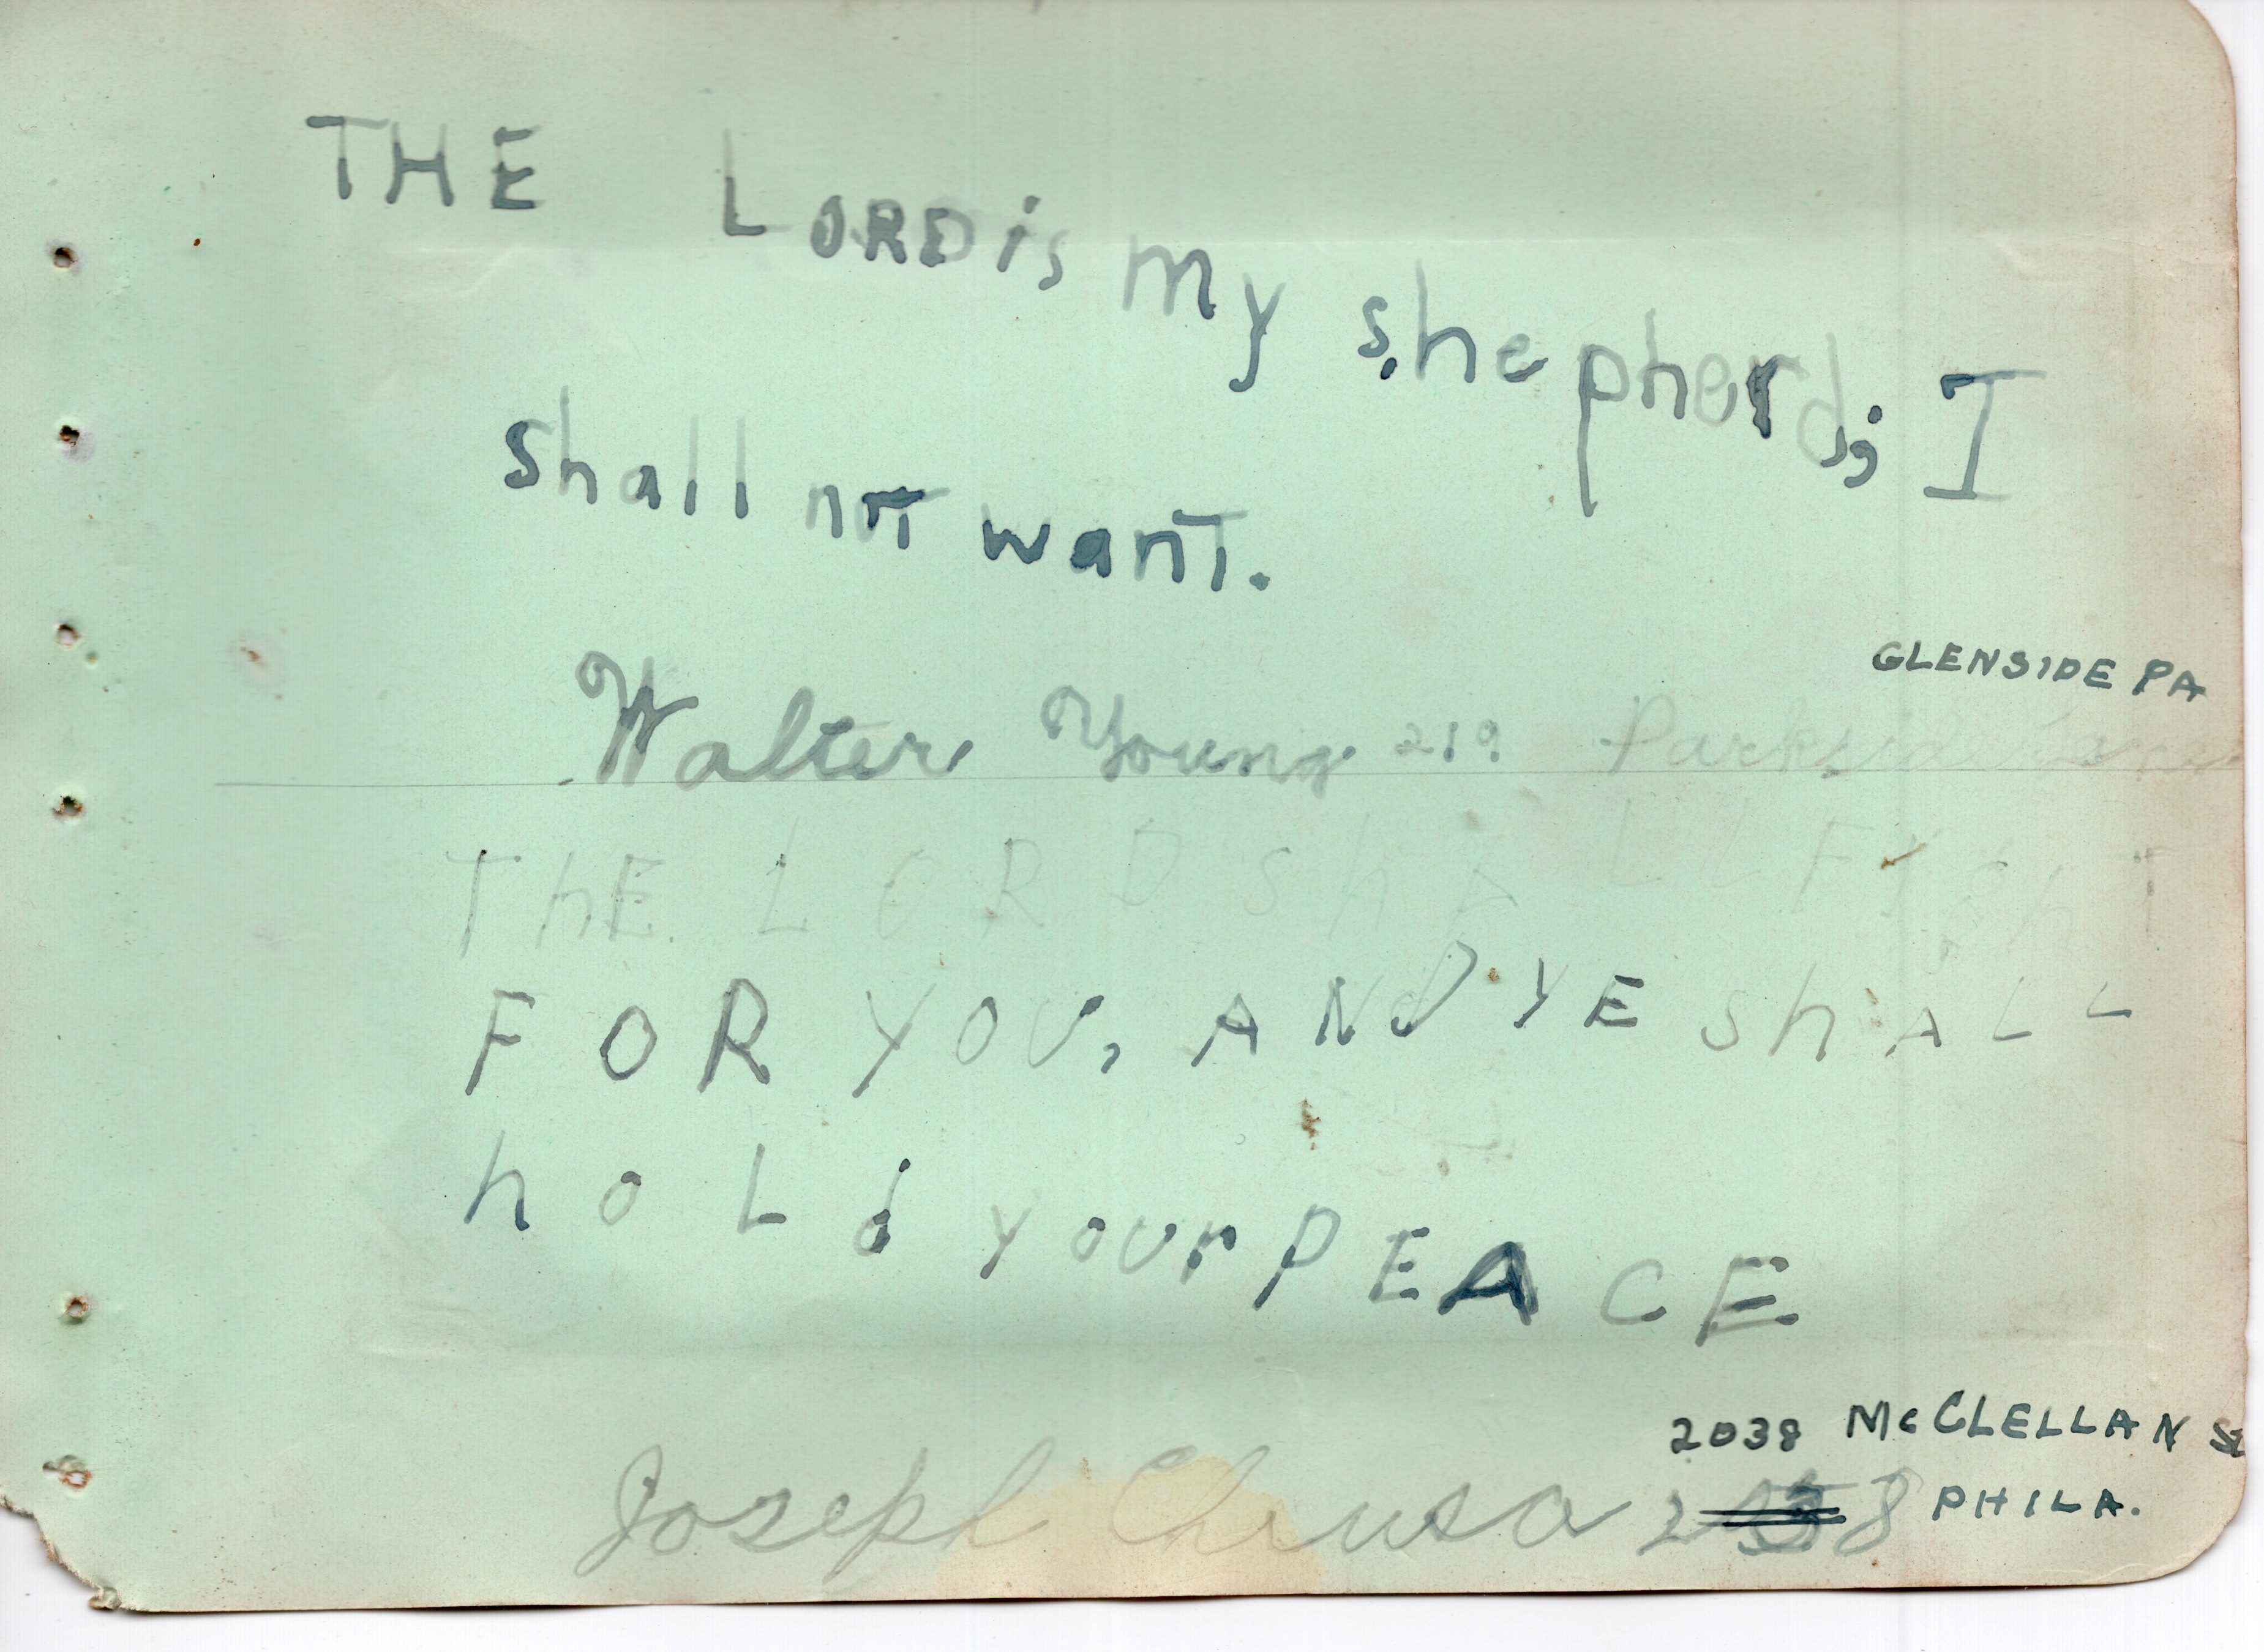 THE LORD is my shepherd; I
shall not want.
GLENSIDE PA
Walter Young 219 Parkside
ThE LORD ShALL FIGhT
FOR YOU, ANd YE ShALL
hOLd YOUr PEACE
2038 McCLELLAN St
Joseph
PHILA.